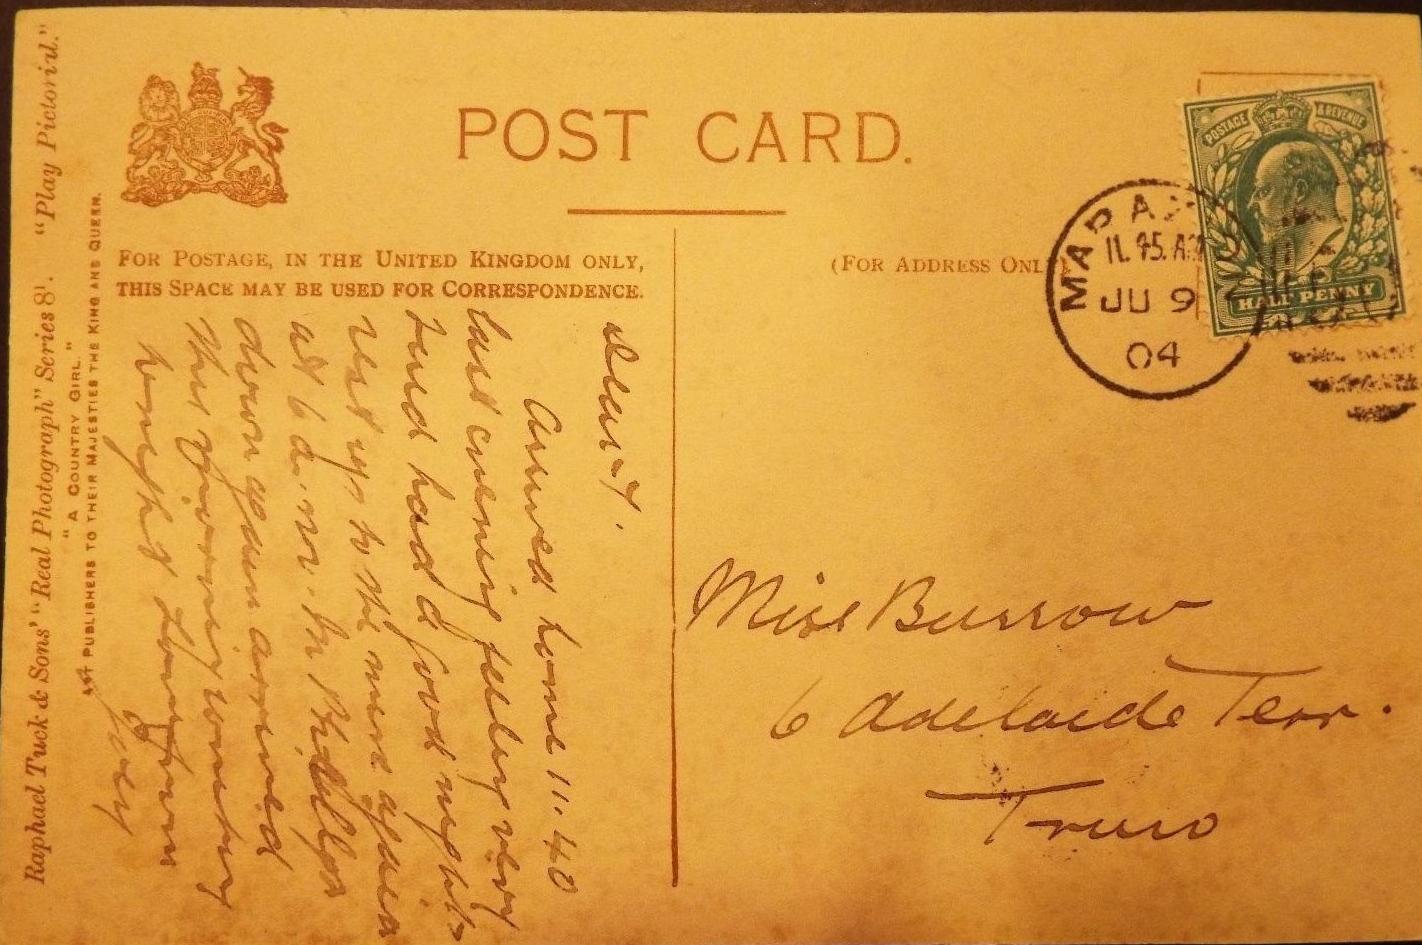 POST CARD.
FOR POSTAGE, IN THE UNITED KINGDOM ONLY,
THIS SPACE MAY BE USED FOR CORRESPONDENCE.
(FOR ADDRESS ONL
POSTAGE & REVENUE
HALF PENNY
MARAZ
11.45.AM
JU 9
04
Dear
Arrived home 11.40
last evening feeling very
tired had a good nights
rest up to the mine again
at 6 a.m. to
down again arrived
this
tonight
Miss Burrow
6 Adelaide Terr.
Truro
Raphael Tuck & Sons' "Real Photograph" Series 81. "Play Pictorial."
"A COUNTRY GIRL."
ART PUBLISHERS TO THEIR MAJESTIES THE KING AND QUEEN.